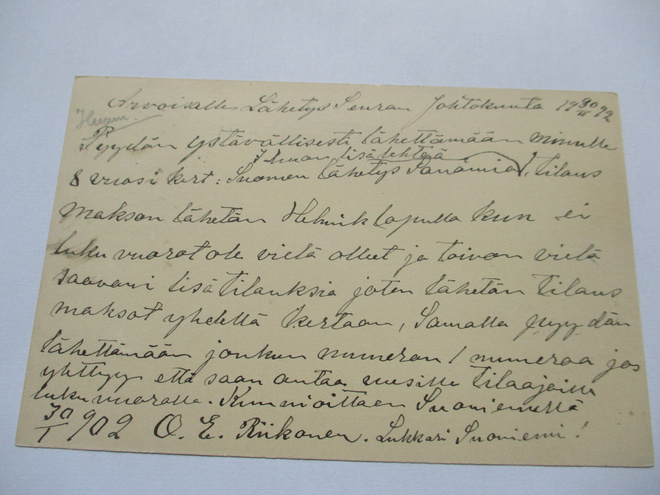 Arvoiselle Lähetys Seuran Johtokunta 19 30/I 02
Pyydän ystävällisesti lähettämään minulle
Ilman lisälehteä
8 vuosi kert: Suomen Lähetys Sanomia, tilaus
makson lähetän Helmik lopulla kun ei
luku vuorot ole vielä olleet ja toivon vielä
saavani lisätilauksia joten lähetän tilaus
maksot yhdellä kertaan, Samalla pyydän
lähettämään jonkun numeran 1 numeraa jos
yhttyy että saan antaa uusille tilaajoille
luku vuoralla. Kunnioittaen Suoniemellä
30/I 902 O. E. Riikonen. Lukkari Suoniemi!